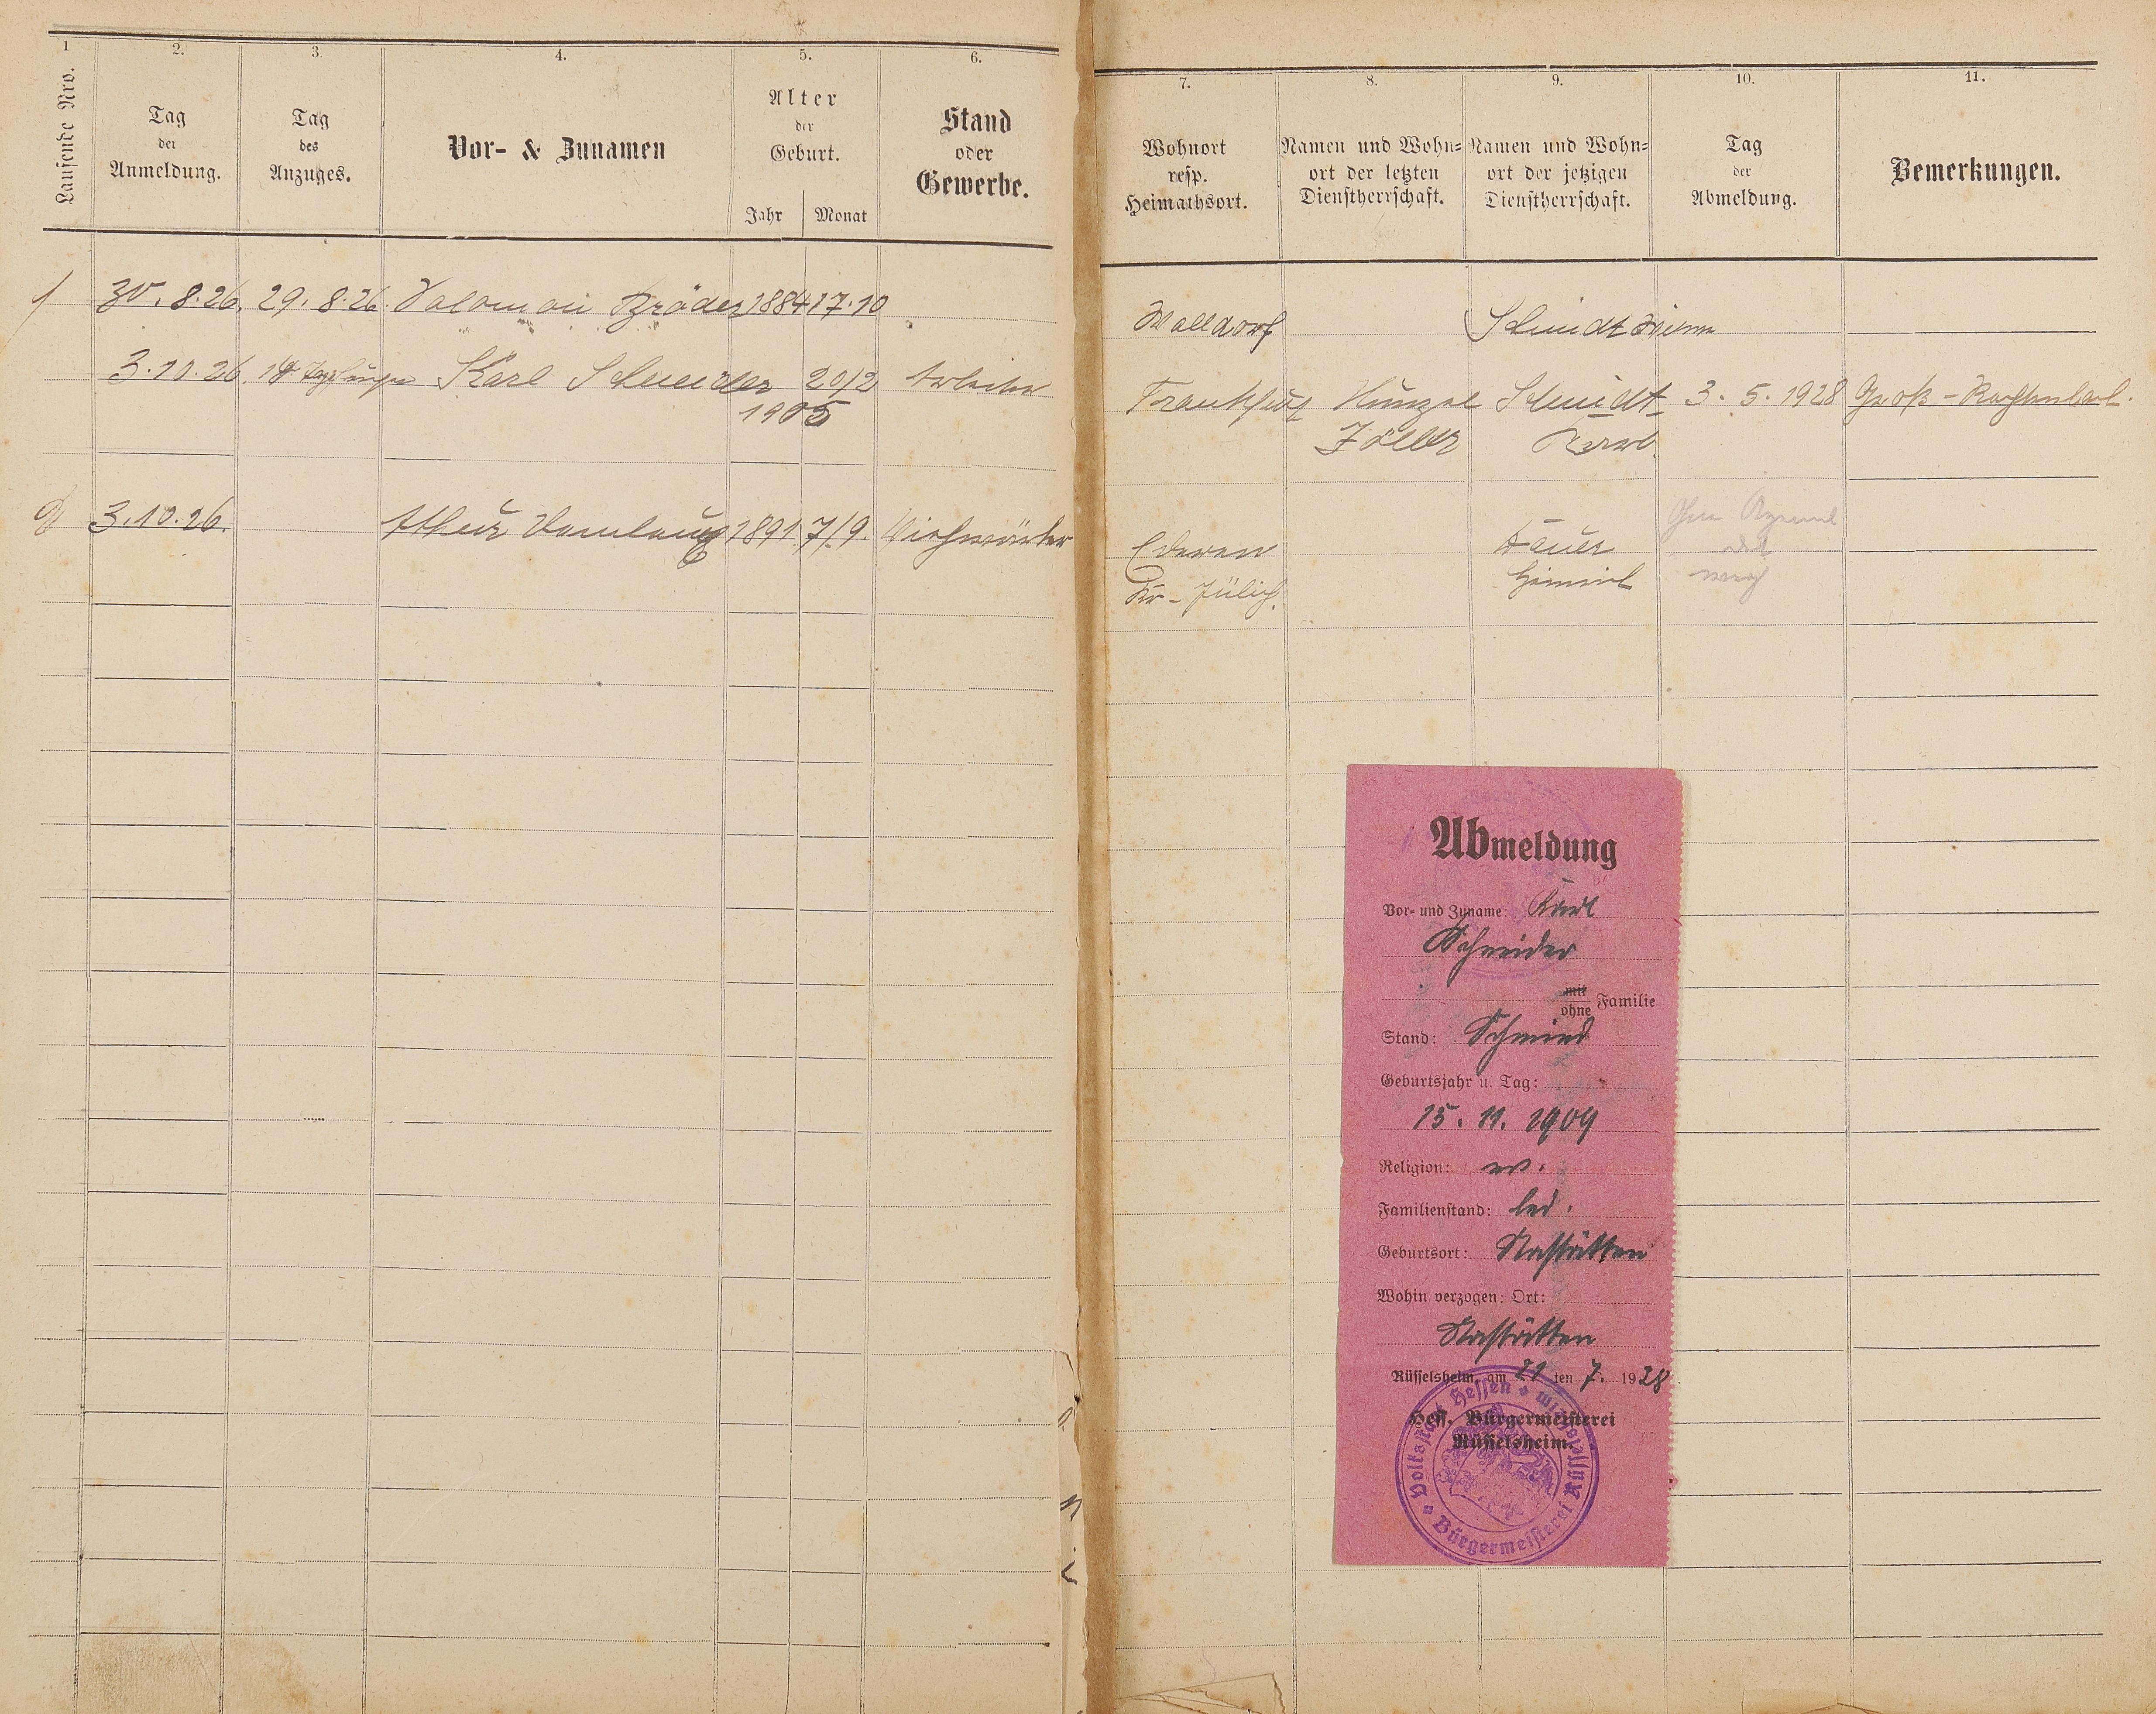 1 2. 3. 4. 5. 6.
Laufende Nro.
Tag der Anmeldung.
Tag des Anzuges.
Vor- & Zunamen
Alter der Geburt.
Jahr Monat
Stand oder Gewerbe.
7. 8. 9. 10. 11.
Wohnort resp. Heimathsort.
Namen und Wohn-ort der letzten Dienstherrschaft.
Namen und Wohn-ort der jetzigen Dienstherrschaft.
Tag der Abmeldung.
Bemerkungen.
30. 8. 26. 29. 8. 26. Bröder 1884 17. 10 Walldorf Schmidt
3. 10. 26. Karl Schneider 20/2 Arbeiter Frankfurt Schmidt 3. 5. 1928 Groß-
1905 Karl
3. 10. 26. 1891 7/9. Viehwärter Ederen
Kr. Jülich. Heinrich
weg
Abmeldung
Vor- und Zuname: Karl
Schneider
mit
ohne Familie
Stand: Schmied
Geburtsjahr u. Tag:
15. 11. 1909
Religion: ev.
Familienstand: led.
Geburtsort: Nastätten
Wohin verzogen: Ort:
Nastätten
Rüsselsheim, am 21 ten 7. 1928
Hess. Bürgermeisterei
Rüsselsheim.
Volksstaat Hessen
Bürgermeisterei Rüsselsheim